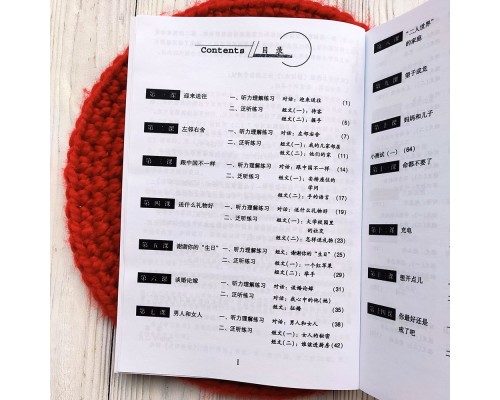 Contents 目录
第一课 迎来送往 一、听力理解练习 对话：迎来送往 (1)
二、泛听练习 短文(一)：待客
短文(二)：握手 (5)
第二课 左邻右舍 一、听力理解练习 对话：左邻右舍 (7)
二、泛听练习 短文(一)：我的几家邻居
短文(二)：他们的家 (11)
第三课 跟中国不一样 一、听力理解练习 对话：跟中国不一样 (14)
二、泛听练习 短文(一)：安排座位的
学问
短文(二)：手的语言 (17)
第四课 送什么礼物好 一、听力理解练习 对话：送什么礼物好 (19)
二、泛听练习 短文(一)：大学校园里
的社交
短文(二)：怎样送礼物 (23)
第五课 谢谢你的“生日” 一、听力理解练习 对话：谢谢你的“生日” (25)
二、泛听练习 短文(一)：一个红苹果
短文(二)：举手 (29)
第六课 谈婚论嫁 一、听力理解练习 对话：谈婚论嫁 (31)
二、泛听练习 对话：我心中的他(她)
短文：征婚 (35)
第七课 男人和女人 一、听力理解练习 对话：男人和女人 (38)
二、泛听练习 短文(一)：女人的秘密
短文(二)：谁该进厨房 (42)
1
第八课 “二人世界”
的家庭
第九课 望子成龙
第十课 妈妈和儿子
小测试（一）(64)
第十一课 命都不要了
充电
想开点儿
第十四课 你最好还是
戒了吧